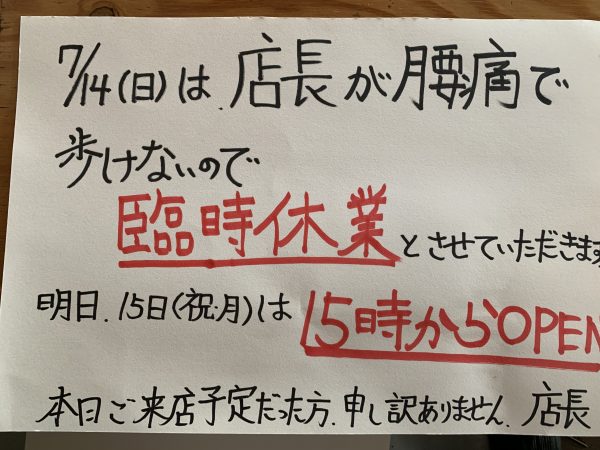 7/14(日)は、店長が腰痛で
歩けないので
臨時休業とさせていただきます
明日、15日(祝・月)は 15時からOPEN
本日ご来店予定だった方、申し訳ありません。店長